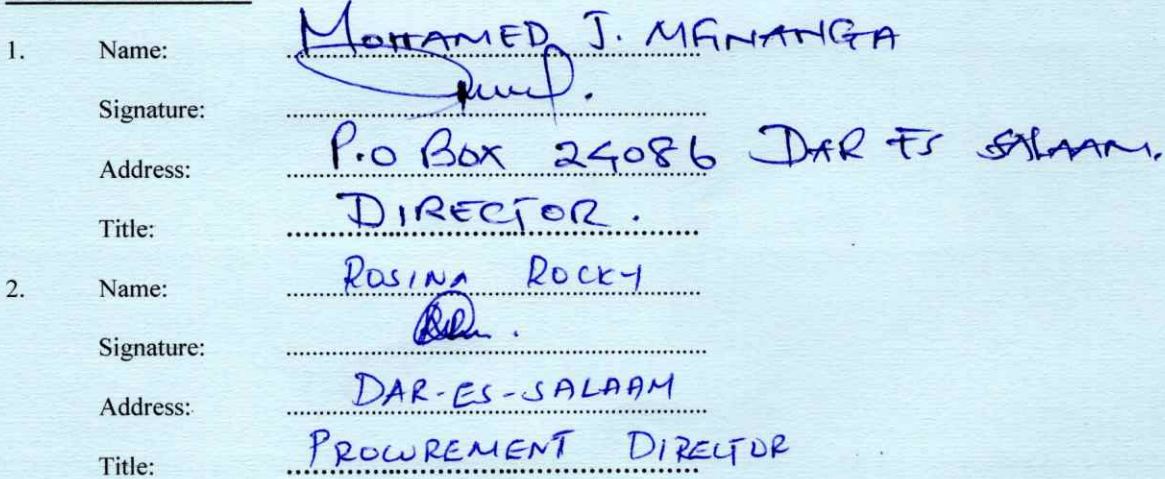 1. Name: MOHAMED J. MGNANGA
Signature:
Address: P.O BOX 24086 DAR ES SALAAM.
Title: DIRECTOR.
2. Name: ROSINA ROCKY
Signature:
Address: DAR-ES-SALAAM
Title: PROCUREMENT DIRECTOR